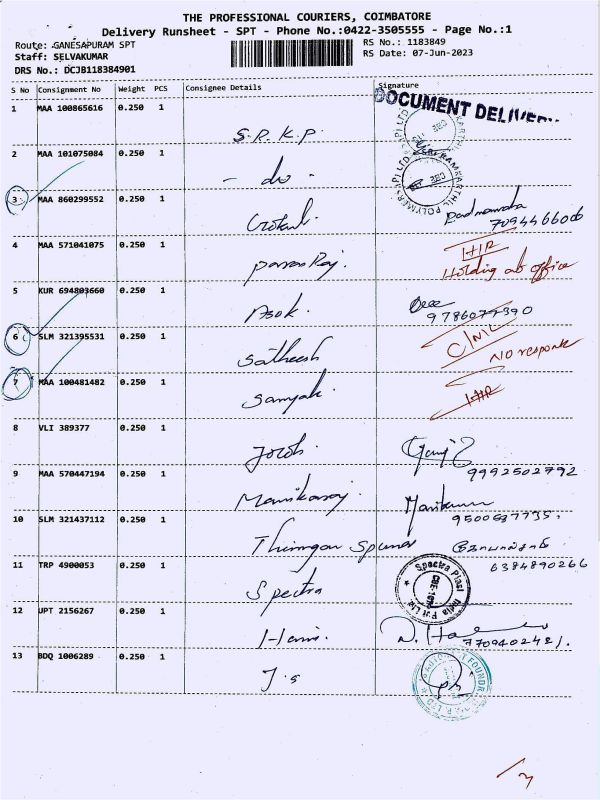 THE PROFESSIONAL COURIERS, COIMBATORE
Delivery Runsheet - SPT - Phone No.:0422-3505555 - Page No.:1
Route: GANESAPURAM SPT
RS No.: 1183849
Staff: SELVAKUMAR
RS Date: 07-Jun-2023
DRS No.: DCJB118384901
S No Consignment No Weight PCS Consignee Details Signature
DOCUMENT DELIVER
1 MAA 100865616 0.250 1
S.R.K.P.
2 MAA 101075084 0.250 1
- do -
3 MAA 860299552 0.250 1
7094466006
4 MAA 571041075 0.250 1
Holding at office
5 KUR 694803660 0.250 1
Asok.
9786077390
6 SLM 321395531 0.250 1
Satheesh
C/NIL
NO response
7 MAA 100481482 0.250 1
8 VLI 389377 0.250 1
9992502792
9 MAA 570447194 0.250 1
Manikaraj
10 SLM 321437112 0.250 1
6384890266
11 TRP 4900053 0.250 1
Spectra
Spectra Plast India Pvt Ltd
12 UPT 2156267 0.250 1
13 BDQ 1006289 0.250 1
J.s